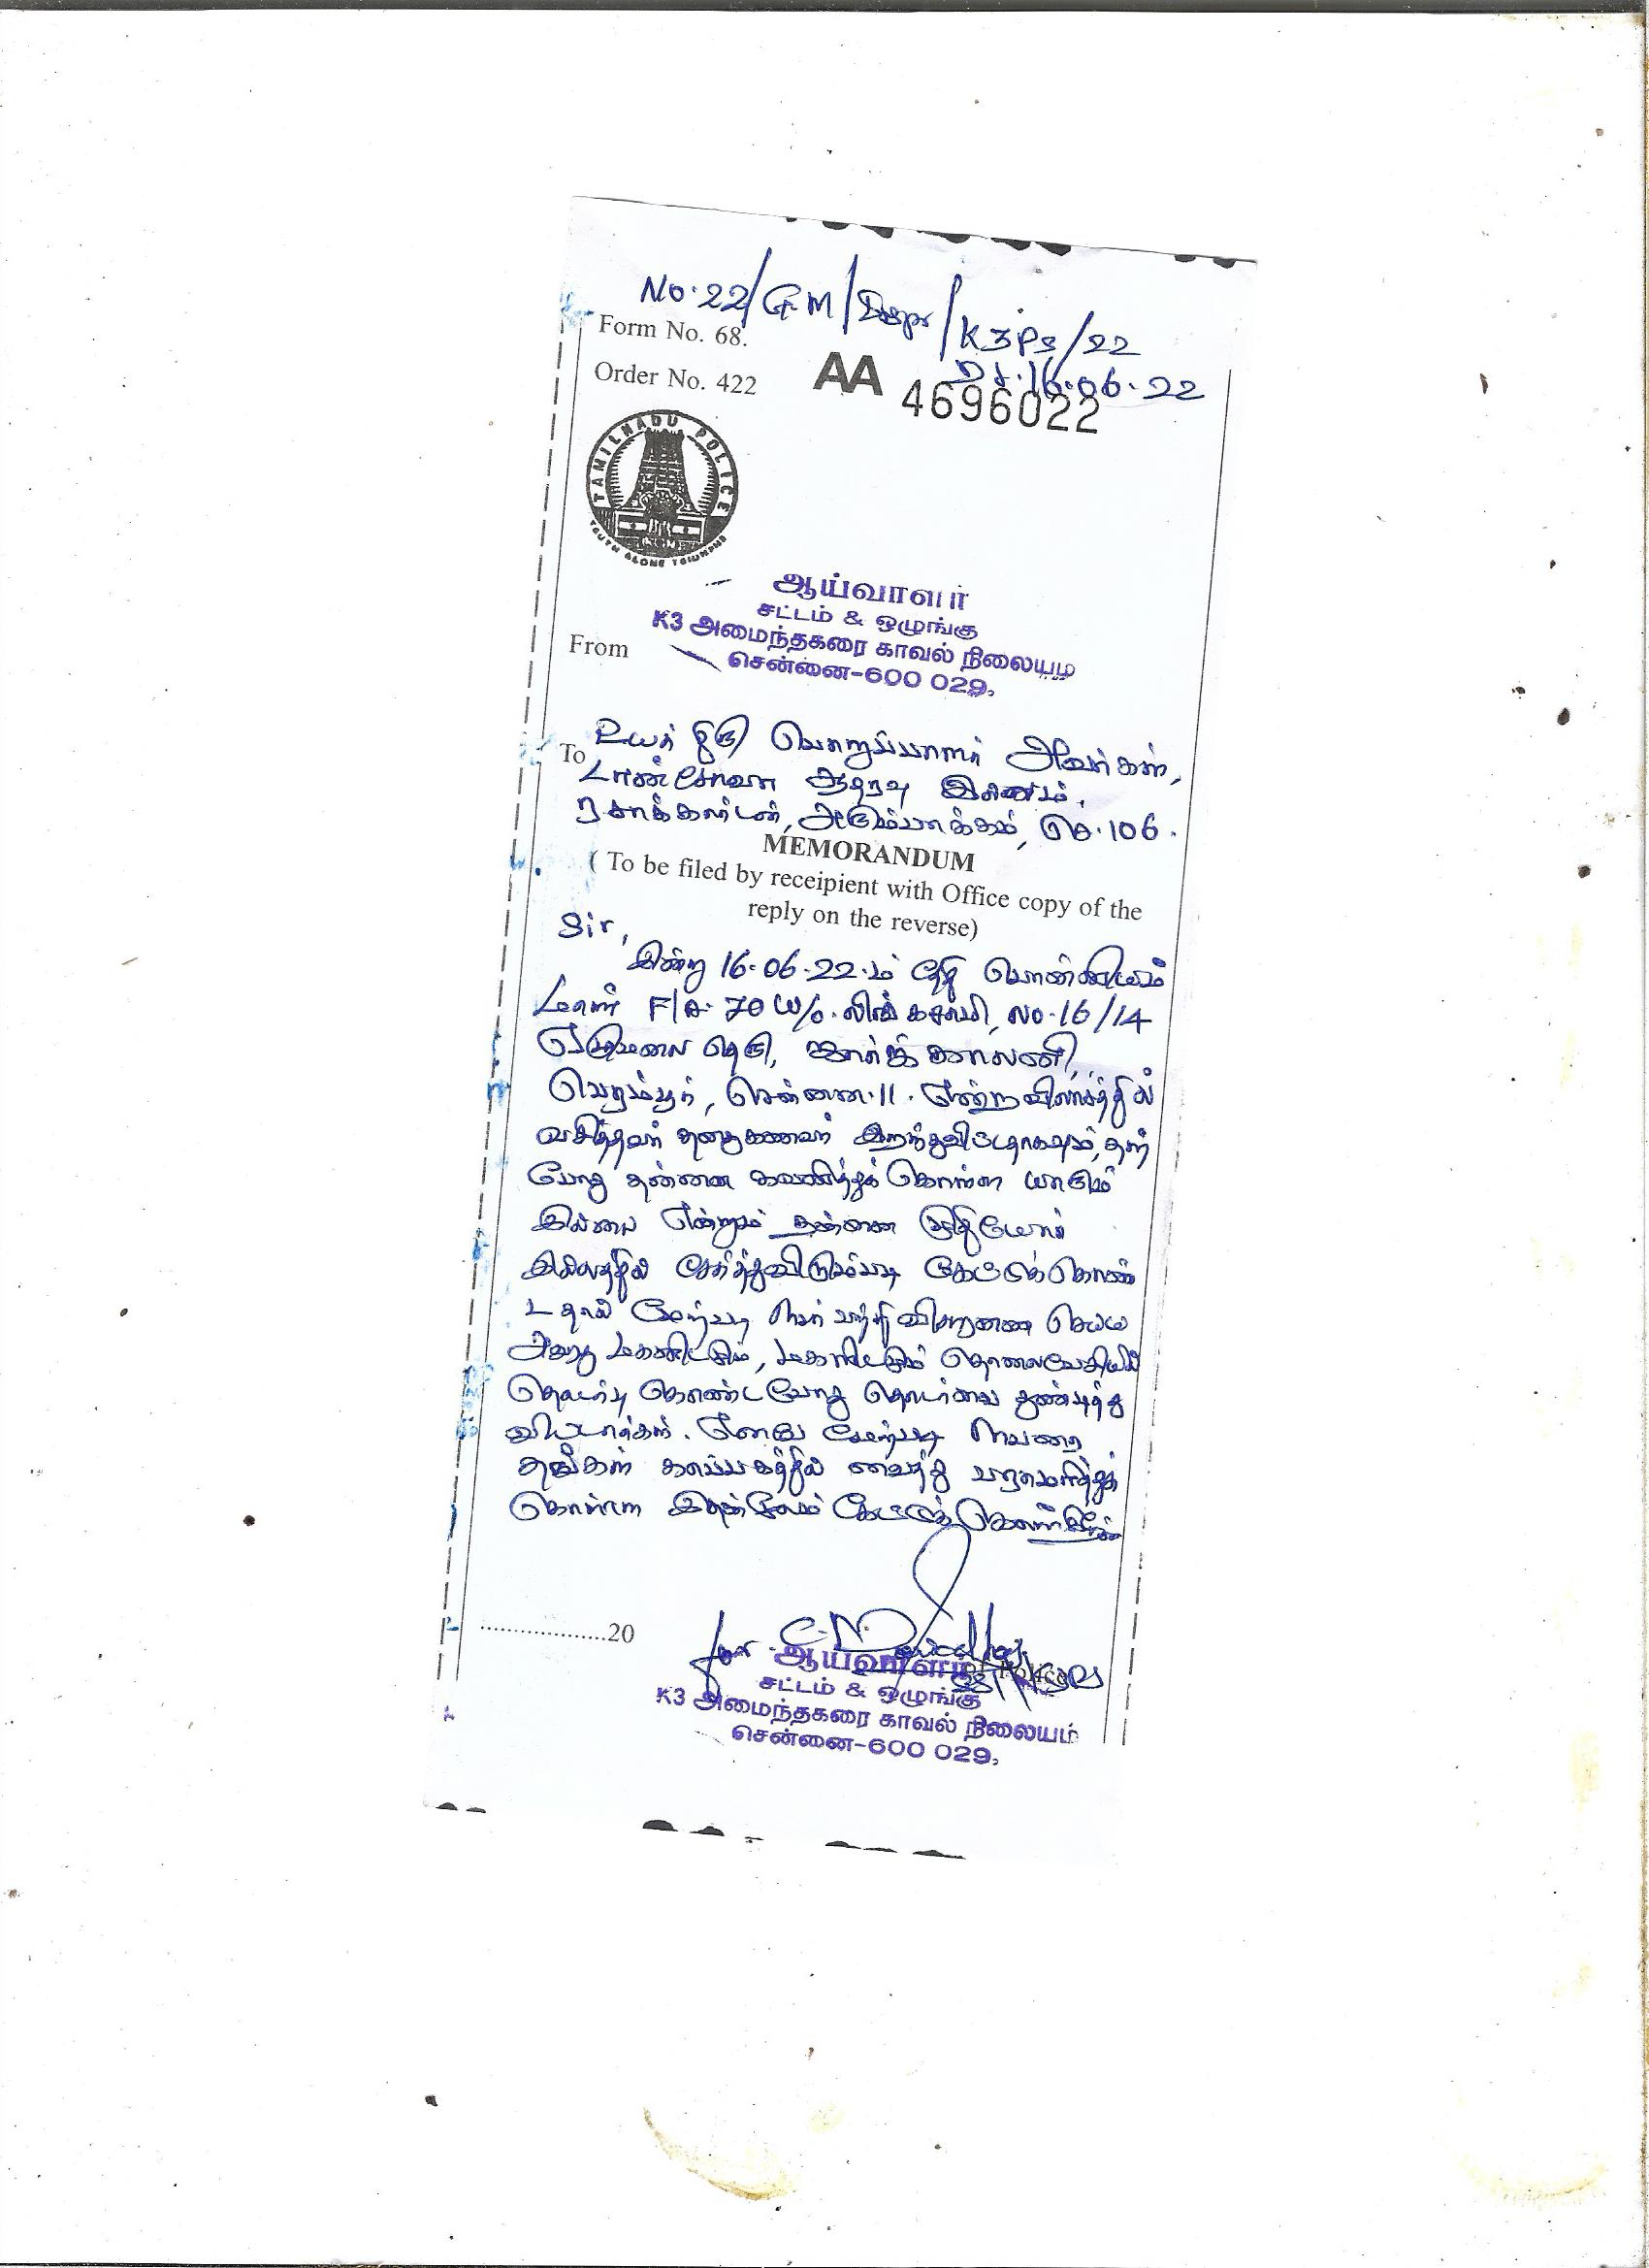 No. 22/G.M/Inspr/K3PS/22
Form No. 68.
Dt. 16.06.22
Order No. 422
AA 4696022
TAMILNADU POLICE
TRUTH ALONE TRIUMPHS
ஆய்வாளர்
சட்டம் & ஒழுங்கு
K3 அமைந்தகரை காவல் நிலையம்
சென்னை-600 029.
From
To
உயர் திரு பொறுப்பாளர் அவர்கள்,
ஆதரவு இல்லம்,
ரசாக்கார்டன், அரும்பாக்கம், செ.106.
MEMORANDUM
( To be filed by receipient with Office copy of the
reply on the reverse)
Sir,
இன்று 16.06.22.ம் தேதி பொன்னியம்
மாள் F/A. 70 W/o. No. 16/14
ஏழுமலை தெரு, ஜார்ஜ் காலனி,
பெரம்பூர், சென்னை.11. என்ற விலாசத்தில்
வசித்தவர் தனது கணவர் இறந்துவிட்டதாகவும், தற்
போது தன்னை கவனித்துக் கொள்ள யாரும்
இல்லை என்றும் தன்னை முதியோர்
இல்லத்தில் சேர்த்துவிடும்படி கேட்டுக்கொண்
டதால் மேற்படி நபர் பற்றி விசாரணை செய்ய
அவரது மகனிடமும், மகளிடமும் தொலைபேசியில்
தொடர்பு கொண்ட போது தொடர்பை துண்டித்து
விட்டார்கள். எனவே மேற்படி நபரை
தங்கள் காப்பகத்தில் வைத்து பராமரித்துக்
கொள்ள இதன்மூலம் கேட்டுக் கொள்கிறேன்
..................20
for
of Police
ஆய்வாளர்
சட்டம் & ஒழுங்கு
K3 அமைந்தகரை காவல் நிலையம்
சென்னை-600 029.